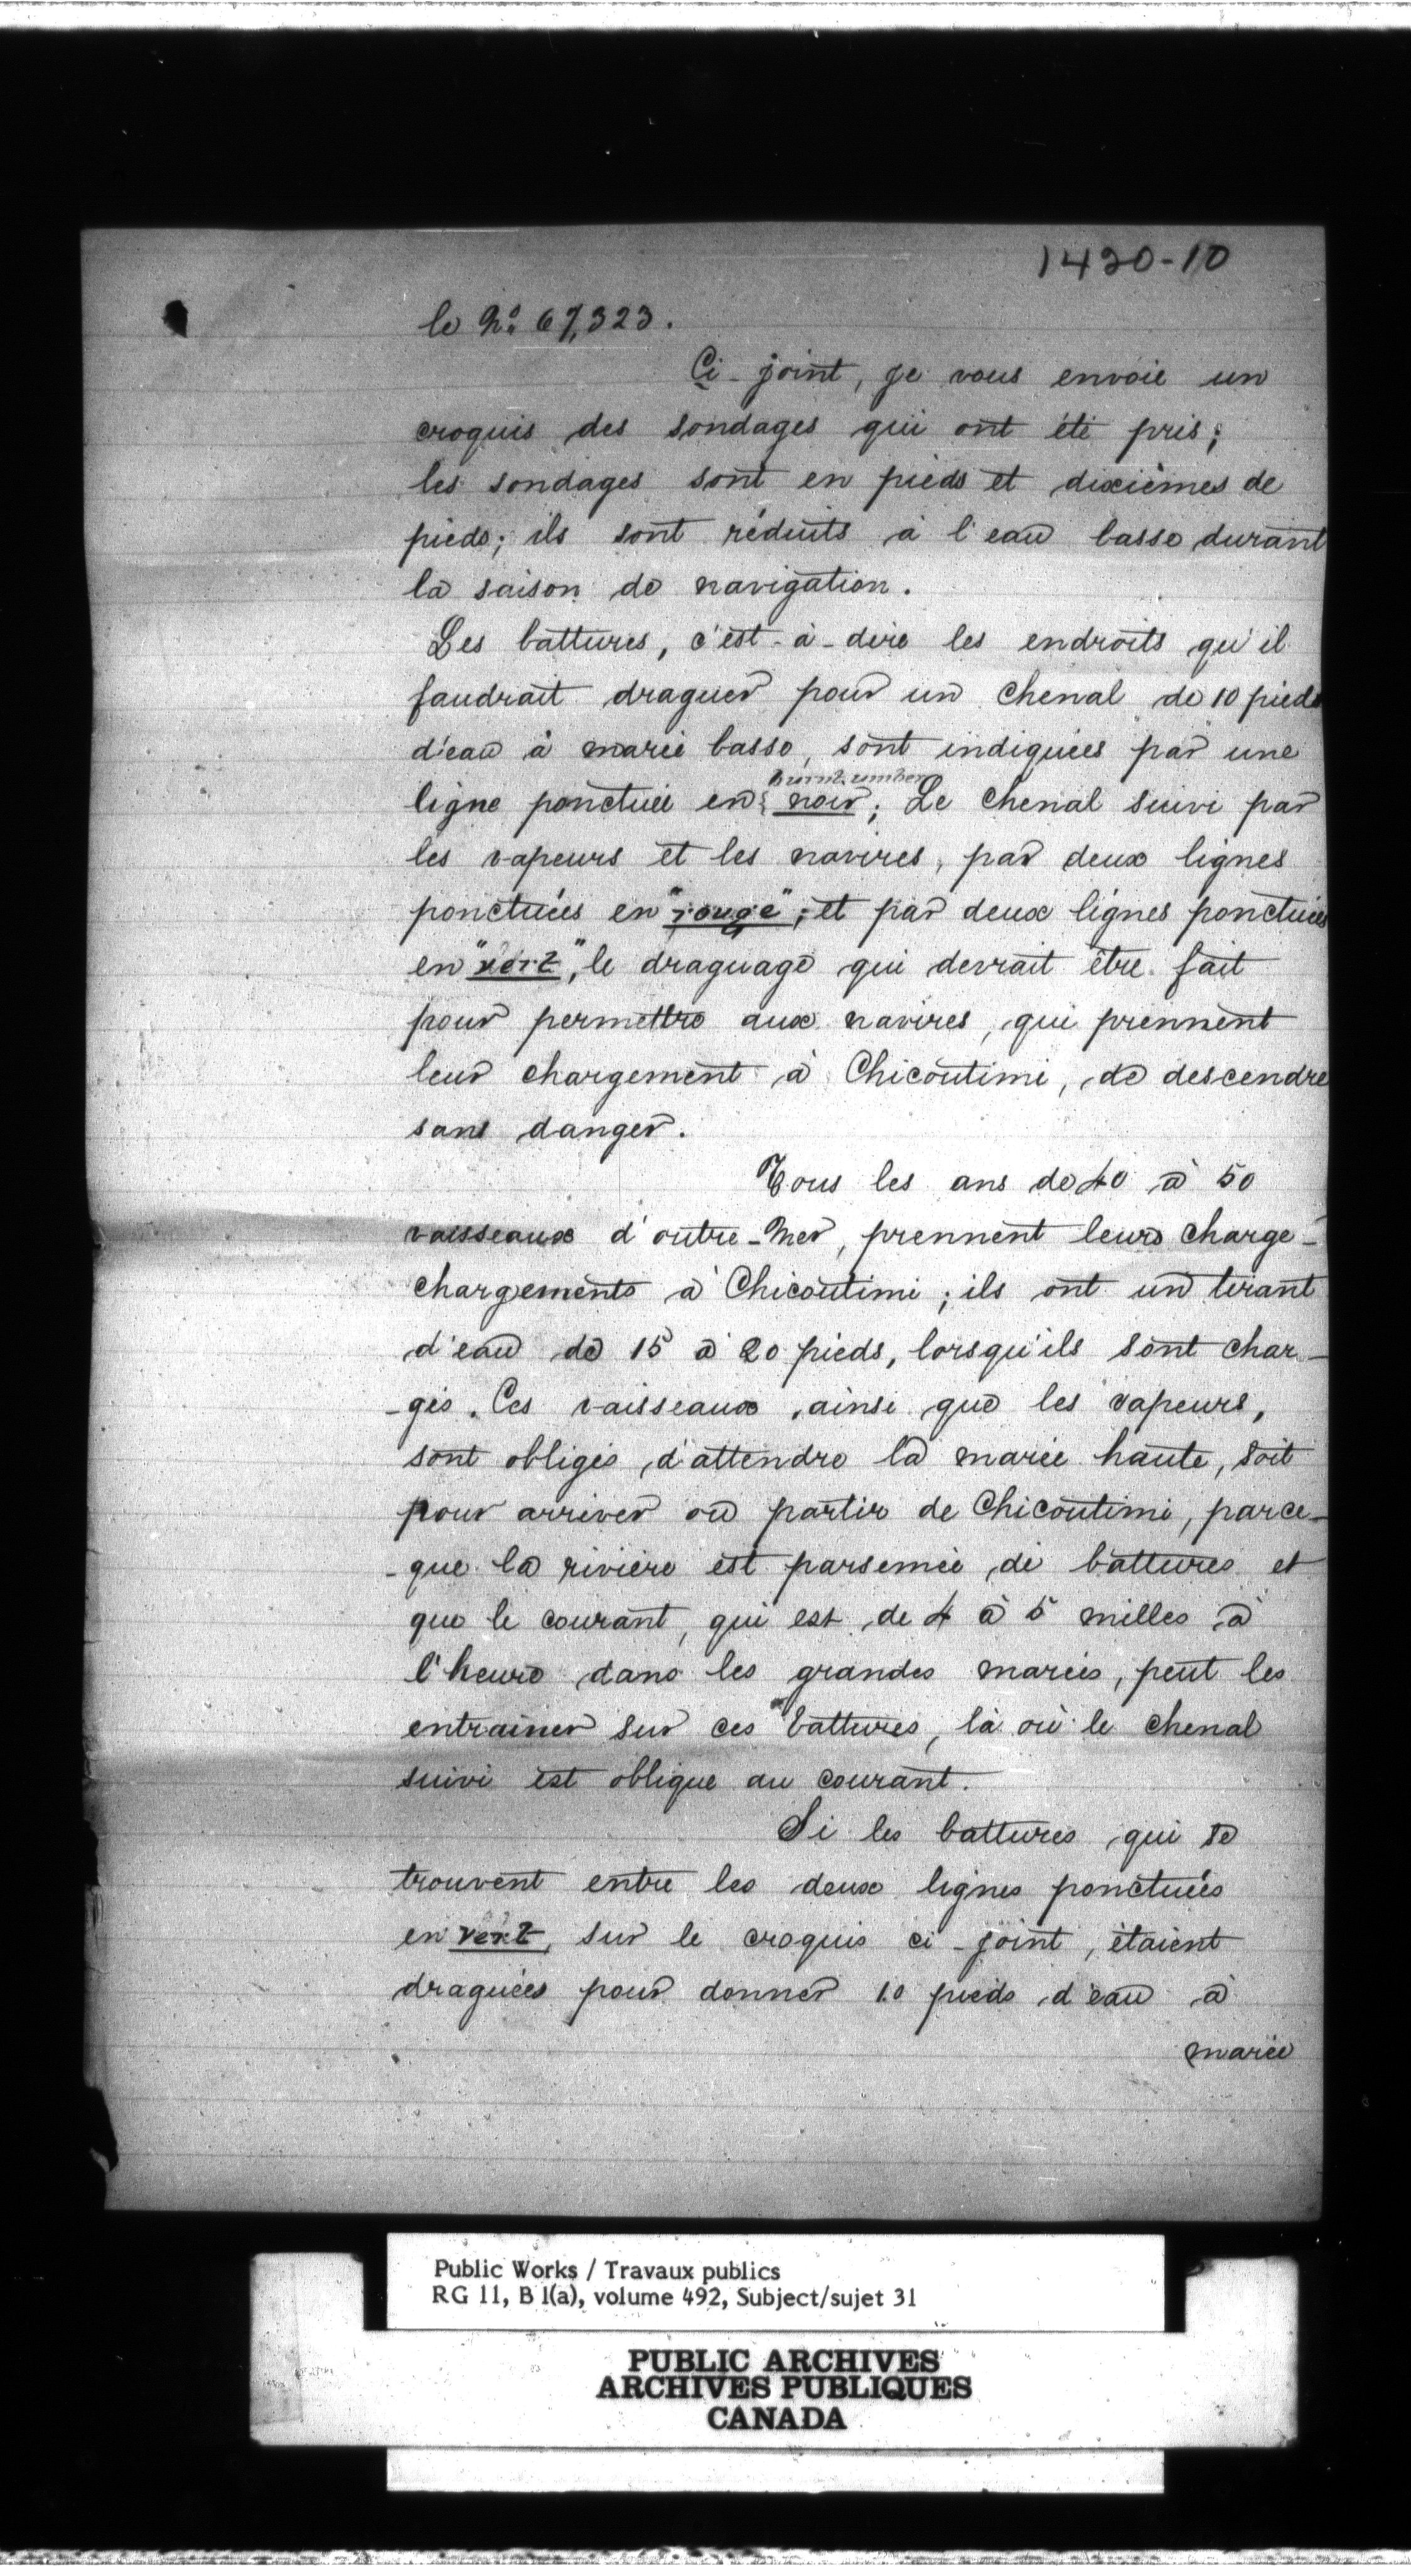 1420-10
le No. 67,323.
Ci-joint, je vous envoie un
croquis des sondages qui ont été pris;
les sondages sont en pieds et dixièmes de
pieds; ils sont réduits à l'eau basse durant
la saison de navigation.
Les battures, c'est-à-dire les endroits qu'il
faudrait draguer pour un chenal de 10 pieds
d'eau à marée basse, sont indiquées par une
burnt umber
ligne ponctuée en noir; Le chenal suivi par
les vapeurs et les navires, par deux lignes
ponctuées en "rouge"; et par deux lignes ponctuées
en "vert", le draguage qui devrait être fait
pour permettre aux navires, qui prennent
leur chargement à Chicoutimi, de descendre
sans danger.
Tous les ans de 40 à 50
vaisseaux d'outre-Mer, prennent leurs charge-
chargements à Chicoutimi; ils ont un tirant
d'eau de 15 à 20 pieds, lorsqu'ils sont char-
-gés. Ces vaisseaux, ainsi que les vapeurs,
sont obligés d'attendre la marée haute, soit
pour arriver ou partir de Chicoutimi, parce-
-que la rivière est parsemée de battures et
que le courant, qui est de 4 à 5 milles à
l'heure dans les grandes marées, peut les
entrainer sur ces battures, là où le chenal
suivi est oblique au courant.
Si les battures qui se
trouvent entre les deux lignes ponctuées
en vert, sur le croquis ci-joint, étaient
draguées pour donner 10 pieds d'eau à
marée
Public Works / Travaux publics
RG 11, B 1(a), volume 492, Subject/sujet 31
PUBLIC ARCHIVES
ARCHIVES PUBLIQUES
CANADA